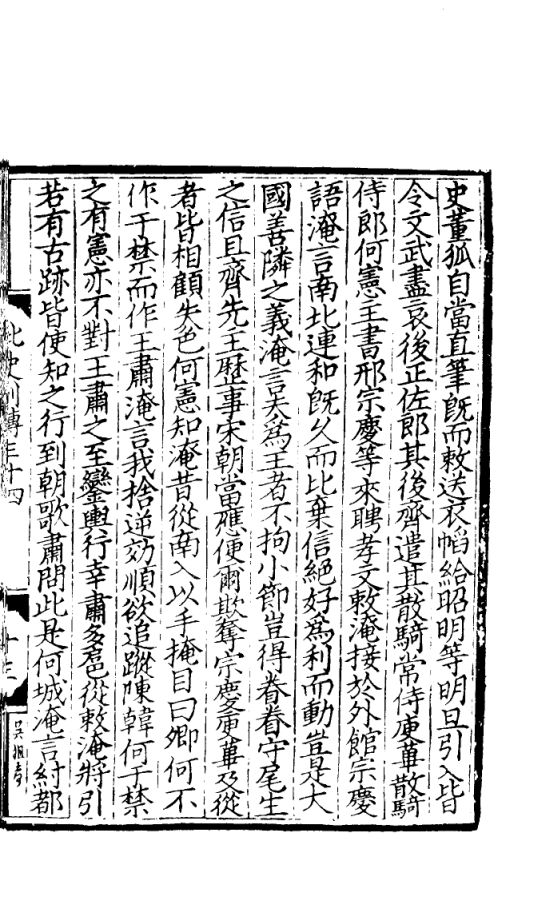 史董狐自當直筆既而敕送衣㡊給昭明等明旦引入皆
令文武盡哀後正佐郎其後齊遣其散騎常侍庾蓽散騎
侍郎何憲主書邢宗慶等來聘孝文敕淹接於外館宗慶
語淹言南北連和既久而比棄信絕好爲利而動豈是大
國善隣之義淹言夫爲王者不拘小節豈得眷眷守尾生
之信且齊先王歷事宋朝當應便爾欺奪宗慶庾蓽及從
者皆相顧失色何憲知淹昔從南入以手掩目曰卿何不
作于禁而作王肅淹言我捨逆効順欲追蹤陳韓何于禁
之有憲亦不對王肅之至鑾輿行幸肅多扈從敕淹將引
若有古跡皆使知之行到朝歌肅問此是何城淹言紂都
北史列傳三十四
十三